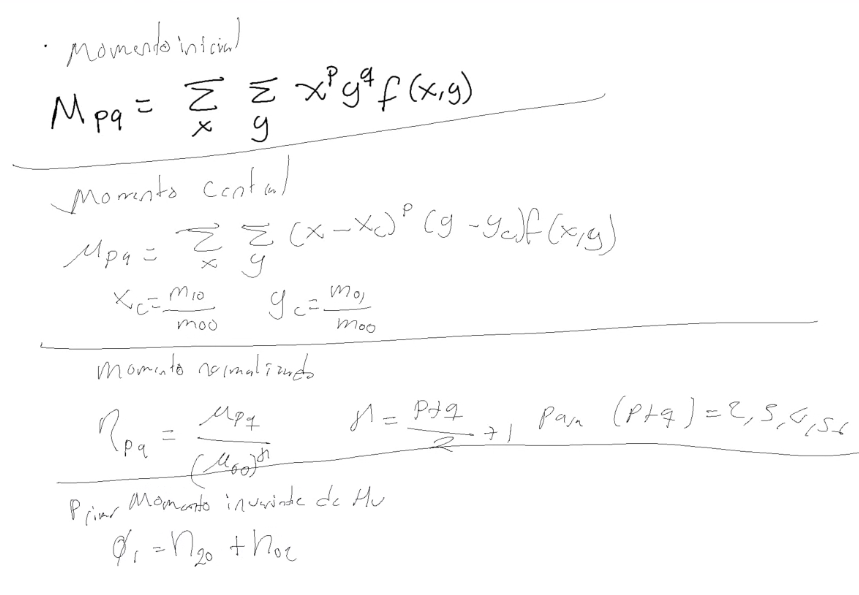 · Momento inicial
M pq = Σ x Σ y x^p y^q f(x,y)
Momento Central
μ pq = Σ x Σ y (x - x_c)^p (y - y_c) f(x,y)
x_c = m10/m00 y_c = m01/m00
Momento normalizado
η pq = μpq/(μ00)^γ γ = p+q/2 + 1 Para (p+q) = 2, 3, 4, 5
Primer Momento invariante de Hu
φ1 = η20 + η02